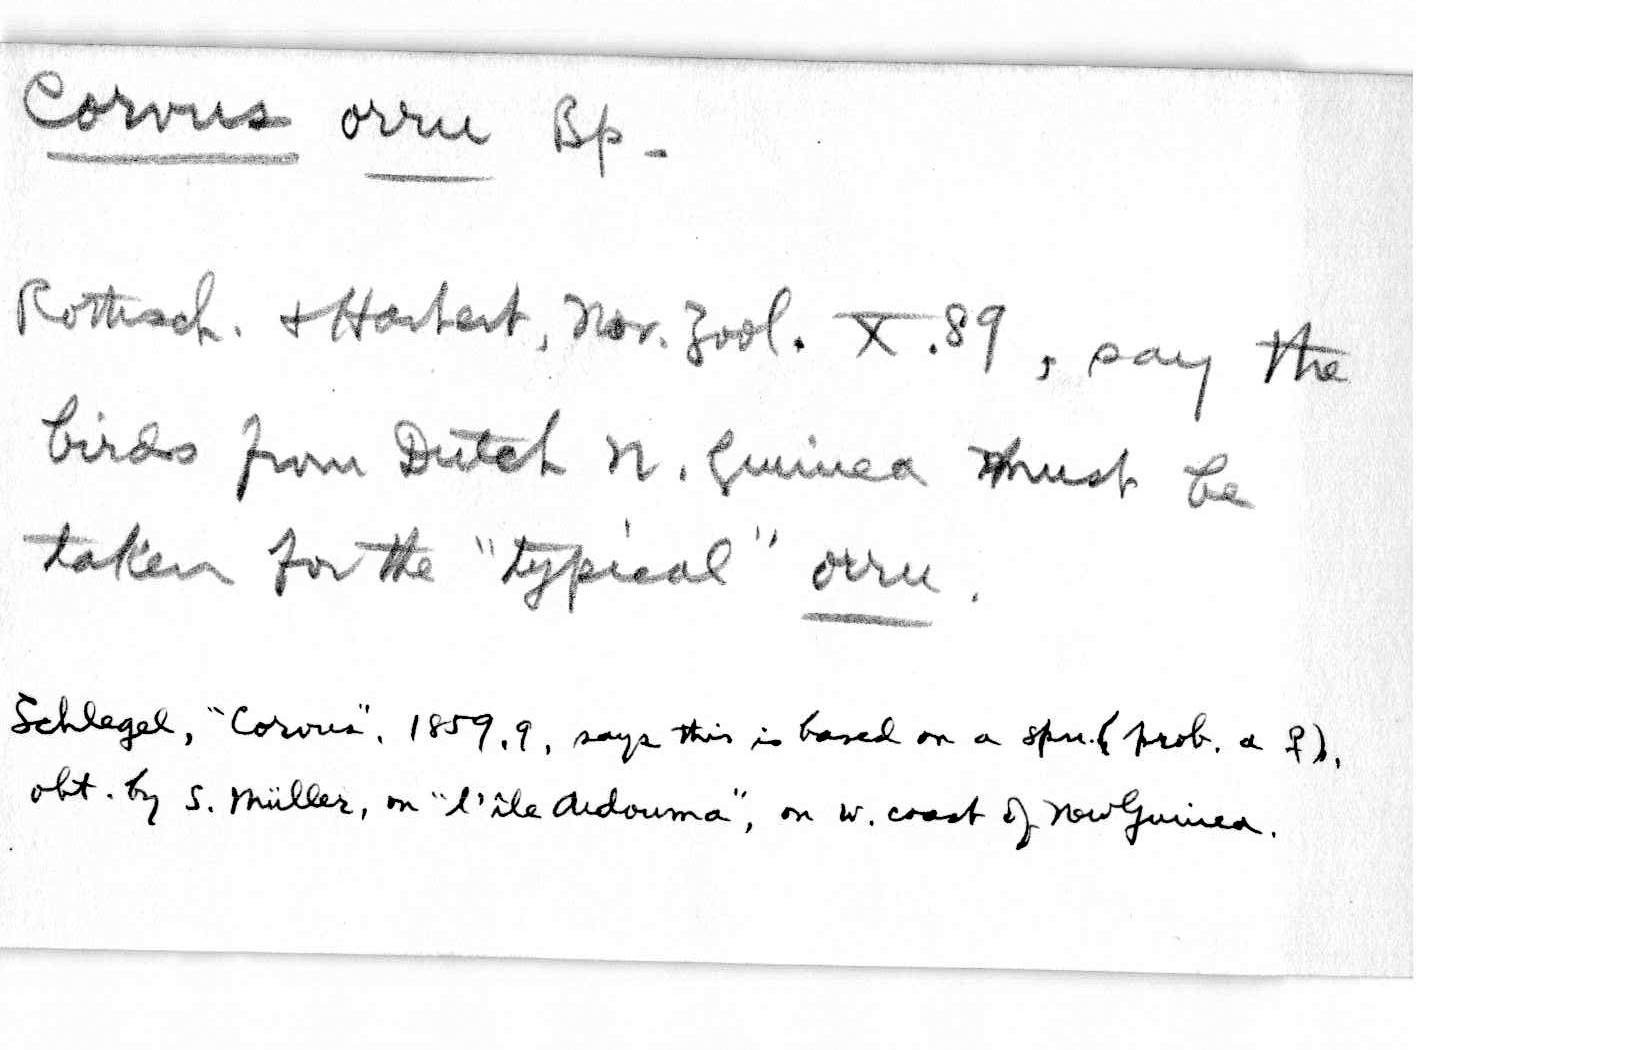 Corvus orru Bp.
Rothsch. + Hartert, Nov. Zool. X.89, say the
birds from Dutch N. Guinea must be
taken for the "typical" orru.
Schlegel, "Corvus", 1859, 9, says this is based on a spm. (prob. a ♀),
obt. by S. Müller, on "l'île Aidouma", on w. coast of New Guinea.